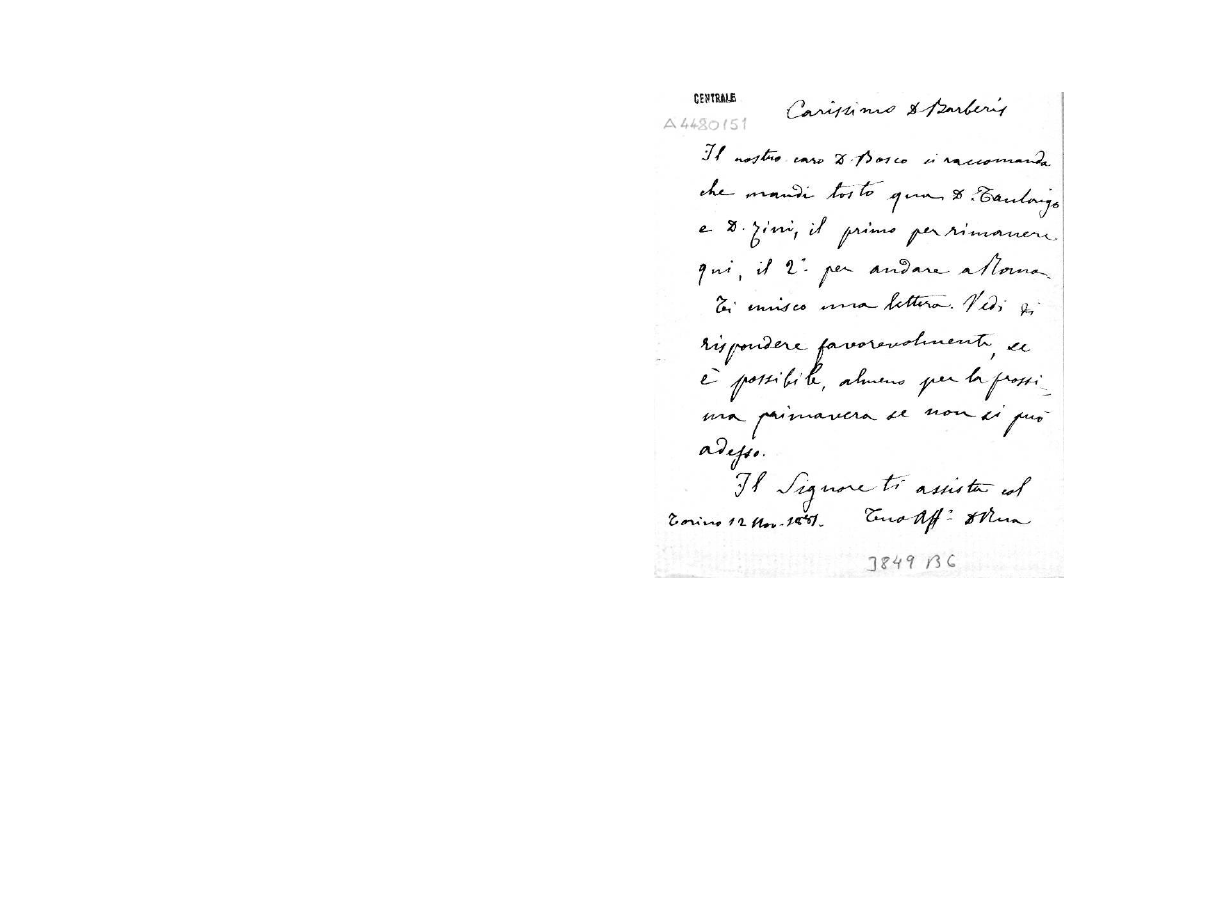 CENTRALE
A4480151
Carissimo D. Barberis
Il nostro caro D. Bosco si raccomanda
che mandi tosto qua D.
e D. Zini, il primo per rimanere
qui, il 2° per andare a Roma
Ti unisco una lettera. Vedi di
rispondere favorevolmente, se
è possibile, almeno per la prossi-
ma primavera se non si può
adesso.
Il Signore ti assista col
Torino 12 Nov. Tuo Aff° D Rua
3849 B6